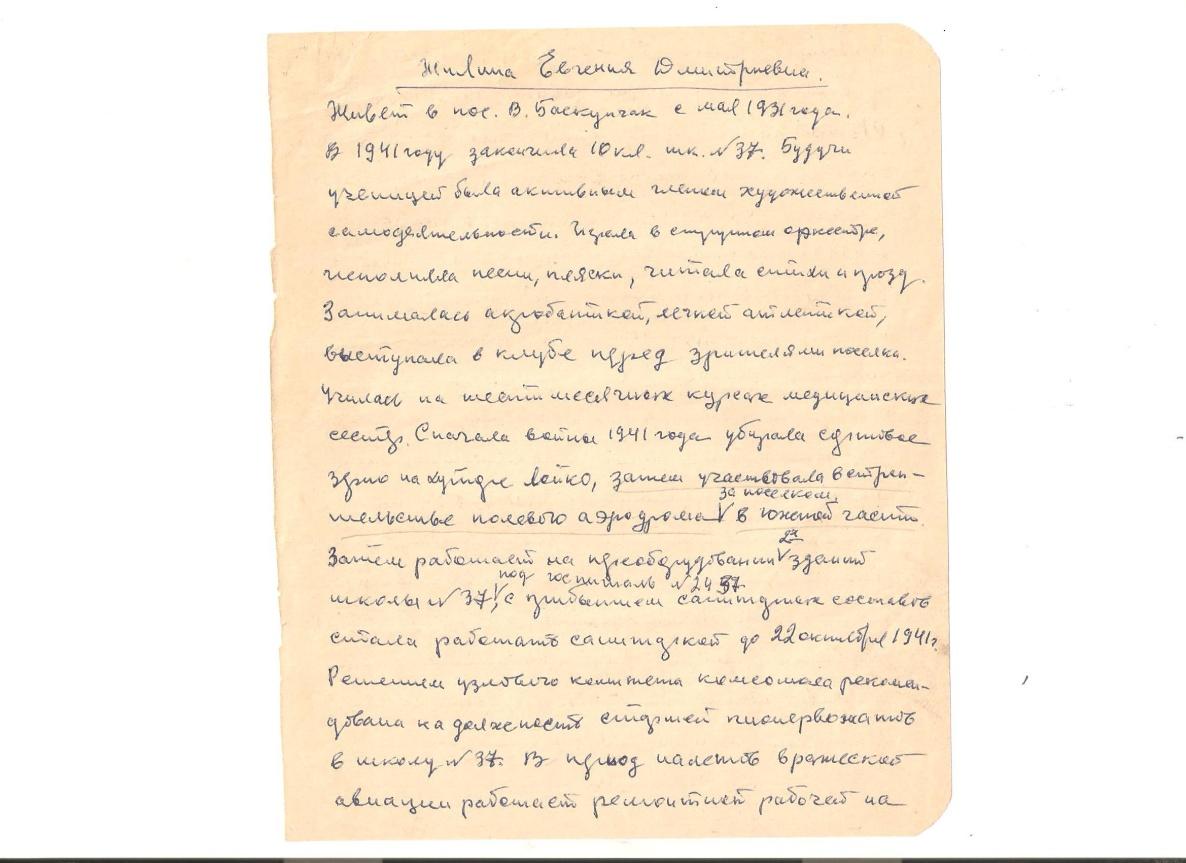 Жилина Евгения Дмитриевна.
Живет в пос. В. Баскунчак с мая 1931 года.
В 1941 году закончила 10 кл. шк. №37. Будучи
ученицей была активным членом художественной
самодеятельности. Играла в струнном оркестре,
исполняла песни, пляски, читала стихи и прозу.
Занималась акробатикой, легкой атлетикой,
выступала в клубе перед зрителями поселка.
Училась на шестимесячных курсах медицинских
сестер. С начала войны 1941 года убирала
зерно на хуторе Лойко, затем участвовала в строи-
за поселком,
тельстве полевого аэродрома V в южной части.
Затем работает на переоборудовании V зданий
под госпиталь №2437
школы №37, V с прибытием санитарных составов
стала работать санитаркой до 22 октября 1941 г.
Решением узлового комитета комсомола рекомен-
дована на должность старшей пионервожатой
в школу №37. В период налетов вражеской
авиации работает ремонтной рабочей на